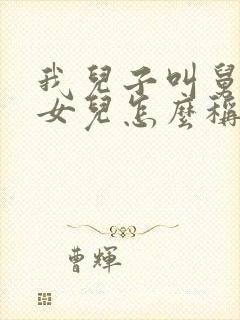 我兒子叫舅
女兒怎麼稱
曹輝